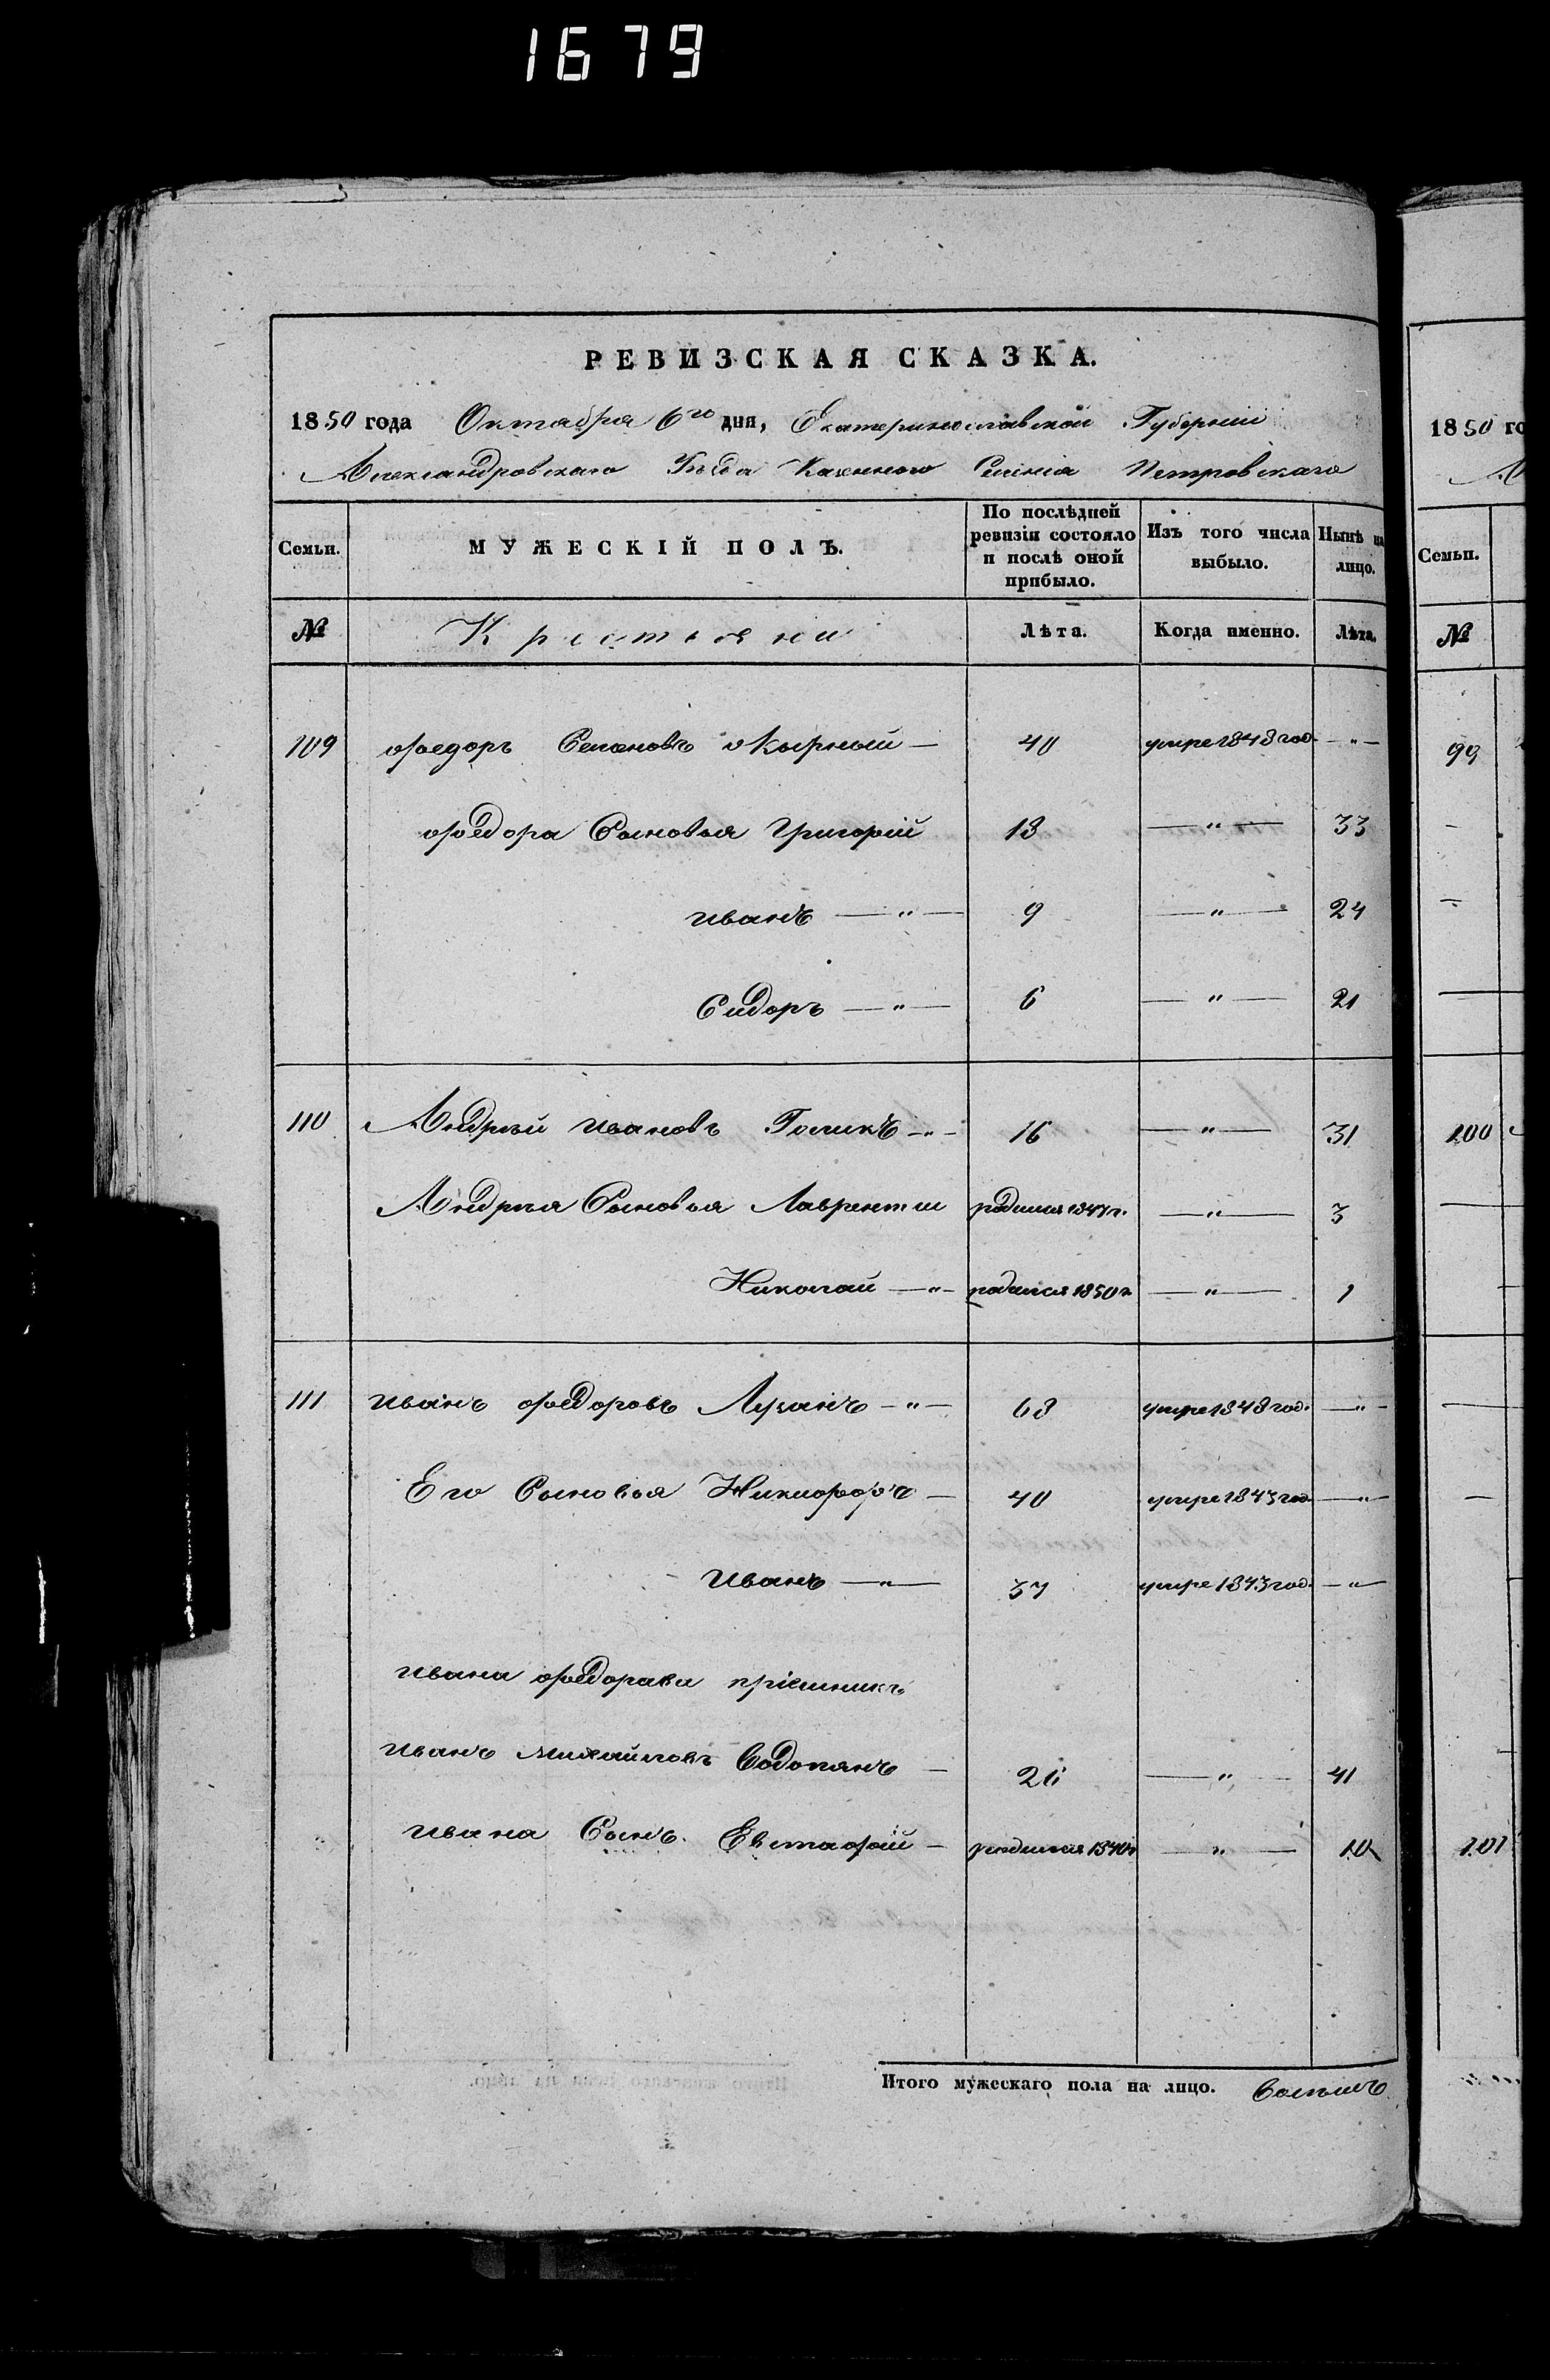 1679
РЕВИЗСКАЯ СКАЗКА.
1850 года Октября 6го дня, Екатеринославской Губерніи
Александровскаго Уезда Казенного Селенія Петровскаго
Семьи. МУЖЕСКІЙ ПОЛЪ. По послѣдней ревизіи состояло и послѣ оной прибыло. Изъ того числа выбыло. Нынѣ на лицо.
№ Крестьяне Лѣта. Когда именно. Лѣта.
109 Федоръ Семановъ 40 умре 1848 год. — " —
Федора Сыновья Григорій 18 — " — 33
Иванъ — " — 9 — " — 24
Сидоръ — " — 6 — " — 21
110 Андрей Ивановъ Голикъ — " — 16 — " — 31
Андрея Сыновья Лаврентий родился 1847 г. — " — 3
Николай — " — родился 1850 г. — " — 1
111 Иванъ Федоровъ — " — 68 умре 1848 год. — " —
Его Сыновья Никифоръ — 40 умре 1843 год — " —
Иванъ — " — 37 умре 1843 год. — " —
Ивана Федорова пріемникъ
Иванъ Михайловъ Водопянъ — 26 — " — 41
Ивана Сынъ Евстафій — родился 1840 г — " — 10
Итого мужескаго пола на лицо. Восемъ
1850 го
Семьи.
№
99
100
101